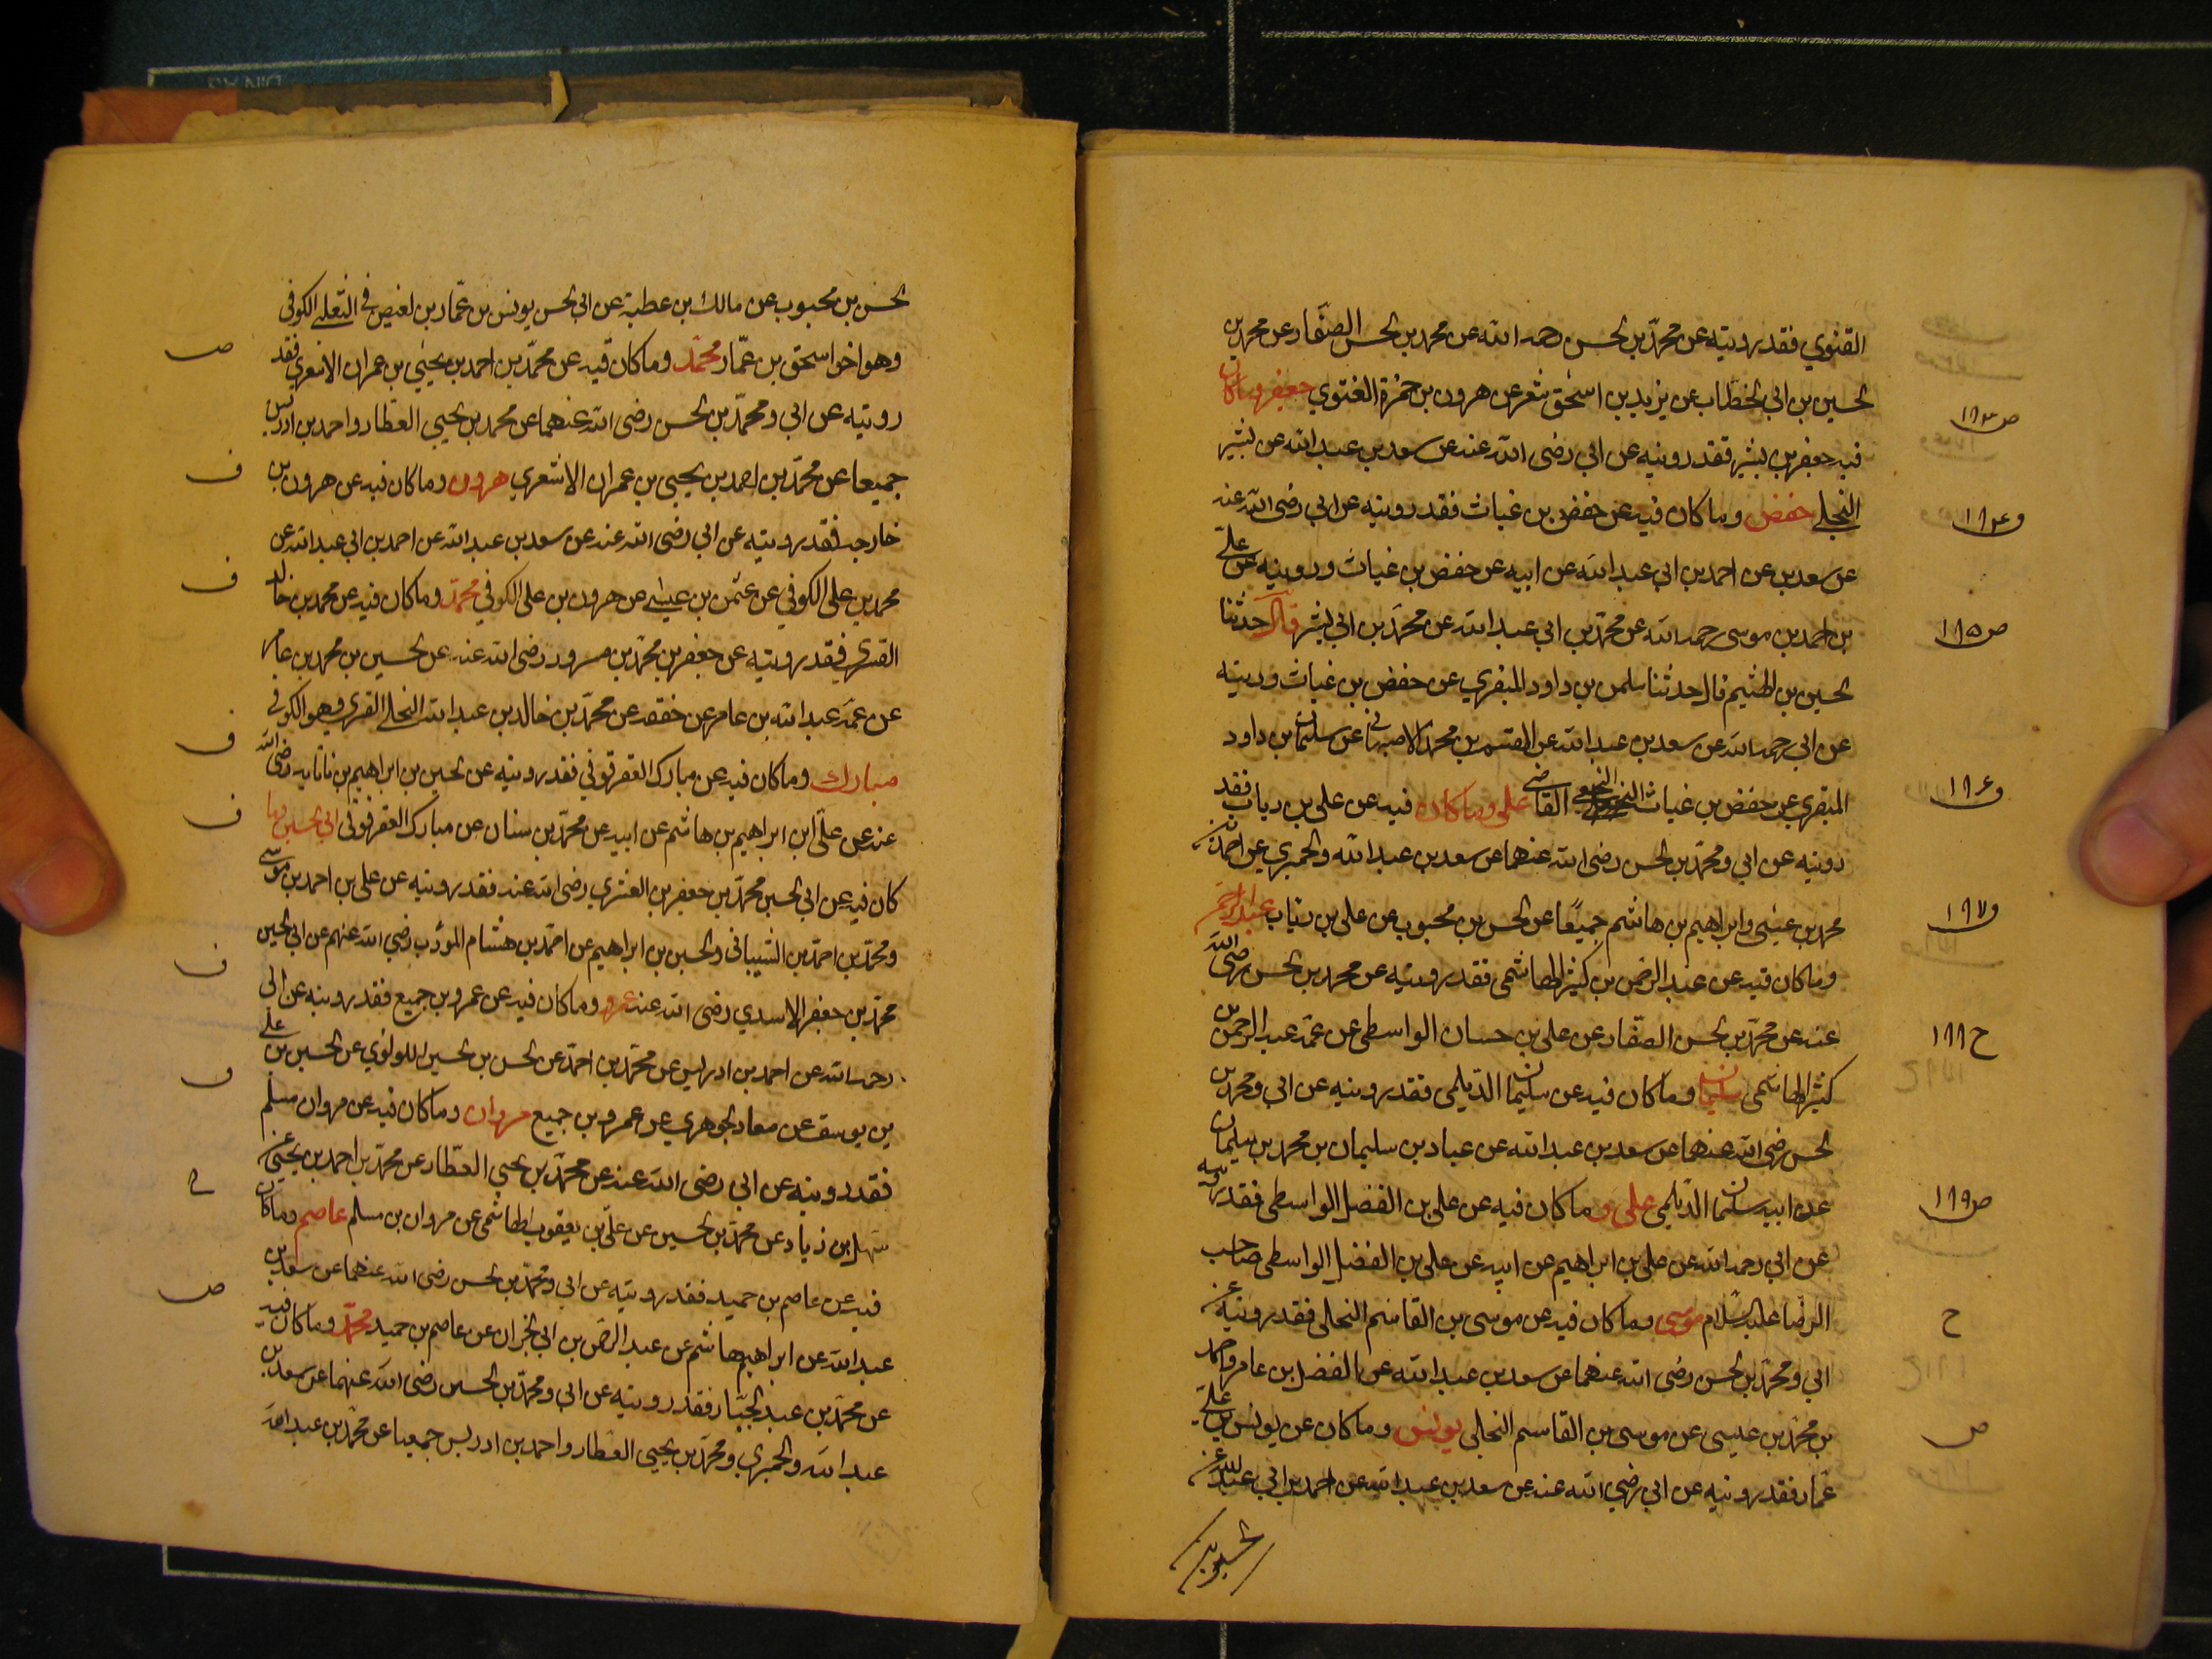 الغنوي فقد رويته عن محمد بن الحسن رحمه الله عن محمد بن الحسن الصفار عن محمد بن
الحسين بن ابي الخطاب عن يزيد بن اسحق شعر عن هرون بن حمزة الغنوي جعفر وما كان
ص ١٨٣
فيه جعفر بن بشير فقد رويته عن ابي رضى الله عنه عن سعد بن عبد الله عن بشير
البجلي حفص وما كان فيه عن حفص بن غياث فقد رويته عن ابي رضى الله عنه
عن سعد بن عن احمد بن ابي عبد الله عن ابيه عن حفص بن غياث ورويته عن علي
بن احمد بن موسى رحمه الله عن محمد بن ابي عبد الله عن محمد بن ابي بشير قال حدثنا
ص ١٨٥
الحسين بن الهيثم قال حدثنا سلمن بن داود المنقري عن حفص بن غياث ورويته
عن ابي رحمه الله عن سعد بن عبد الله عن القسم بن محمد الاصبهاني عن سليمان بن داود
المنقري عن حفص بن غياث النخعي القاضي علي وما كان فيه عن علي بن رياب فقد
رويته عن ابي ومحمد بن الحسن رضى الله عنهما عن سعد بن عبد الله والحميري عن احمد بن
محمد بن عيسى وابراهيم بن هاشم جميعا عن الحسن بن محبوب عن علي بن رئاب عبد الرحمن
١٨٧
وما كان فيه عن عبد الرحمن بن كثير الهاشمى فقد رويته عن محمد بن الحسن رضى الله
عنه عن محمد بن الحسن الصفار عن علي بن حسان الواسطى عن عمه عبد الرحمن بن
ح ١٨٨
كثير الهاشمى سليمان وما كان فيه عن سليمان الديلمى فقد رويته عن ابي ومحمد بن
الحسن رضى الله عنهما عن سعد بن عبد الله عن عباد بن سليمان بن محمد بن سليمان
عن ابيه سليمان الديلمى علي وما كان فيه عن علي بن الفضل الواسطى فقد رويته
ص ١٨٩
عن ابي رحمه الله عن علي بن ابراهيم عن ابيه عن علي بن الفضل الواسطى صاحب
الرضا عليه السلام موسى وما كان فيه عن موسى بن القاسم البجلى فقد رويته عن
ح
ابي ومحمد بن الحسن رضى الله عنهما عن سعد بن عبد الله عن الفضل بن عامر واحمد
بن محمد بن عيسى عن موسى بن القاسم البجلى يونس وما كان عن يونس بن
ص
عمار فقد رويته عن ابي رضي الله عنه عن سعد بن عبد الله عن احمد بن ابي عبد الله عن
الحسن بن
الحسن بن محبوب عن مالك بن عطية عن ابي الحسن يونس بن عمار بن الفيض في التغلبي الكوفى
وهو اخو اسحق بن عمار محمد وما كان فيه عن محمد بن احمد بن يحيى بن عمران الاشعري فقد
ص
رويته عن ابي ومحمد بن الحسن رضى الله عنهما عن محمد بن يحيى العطار واحمد بن ادريس
جميعا عن محمد بن احمد بن يحيى بن عمران الاشعري هرون وما كان فيه عن هرون بن
ف
خارجه فقد رويته عن ابي رضى الله عنه عن سعد بن عبد الله عن احمد بن ابي عبد الله عن
محمد بن علي الكوفي عن عثمن بن عيسى عن هرون بن علي الكوفي محمد وما كان فيه عن محمد بن خالد
ف
القسري فقد رويته عن جعفر بن محمد بن مسرور رضى الله عنه عن الحسين بن محمد بن عامر
عن عمه عبد الله بن عامر عن محمد بن خالد بن عبد الله البجلي القسري وهو الكوفي
مبارك وما كان فيه عن مبارك العقرقوفي فقد رويته عن الحسين بن ابراهيم بن ناتانه رضى الله
ف
عنه عن علي ابن ابراهيم بن هاشم عن ابيه عن محمد بن سنان عن مبارك العقرقوفي ابي الحسين وما
ف
كان فيه عن ابي الحسين محمد بن جعفر بن رضى الله عنه فقد رويته عن علي بن احمد بن موسى
ومحمد بن احمد بن الشيباني والحسين بن ابراهيم عن احمد بن هشام المؤدب رضى الله عنهم عن ابي الحسين
محمد بن جعفر الاسدي رضى الله عنه عمرو وما كان فيه عن عمرو بن جميع فقد رويته عن ابي
ف
رحمه الله عن احمد بن ادريس عن محمد بن احمد عن الحسن بن الحسين اللولوي عن الحسين بن علي
بن يوسف عن معاذ الجوهري عن عمرو بن جميع مروان وما كان فيه عن مروان مسلم
ف
فقد رويته عن ابي رضى الله عنه عن محمد بن يحيى العطار عن محمد بن احمد بن يحيى عن
سهل بن زياد عن محمد بن الحسين عن علي بن يعقوب الهاشمى عن مروان بن مسلم عاصم وما كان
فيه عن عاصم بن حميد فقد رويته عن ابي ومحمد بن الحسن رضى الله عنهما عن سعد بن
عبد الله عن ابراهيم هاشم عن عبد الرحمن بن ابي نجران عن عاصم بن حميد محمد وما كان فيه
ص
عن محمد بن عبد الجبار فقد رويته عن ابي ومحمد بن الحسين رضى الله عنهما عن سعد بن
عبد الله والحميري ومحمد بن يحيى العطار واحمد بن ادريس جميعا عن محمد بن عبد الله